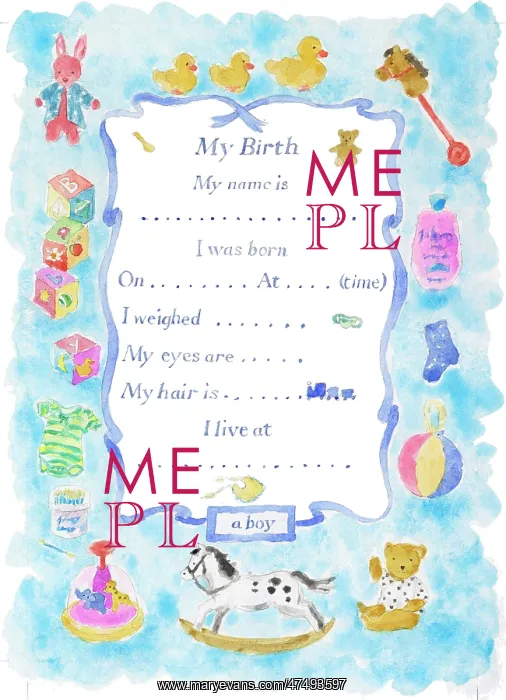 My Birth
My name is
I was born
On ........ At .... (time)
I weighed .......
My eyes are .....
My hair is .......
I live at
a boy
B
ME
PL
ME
PL
www.maryevans.com/47493597